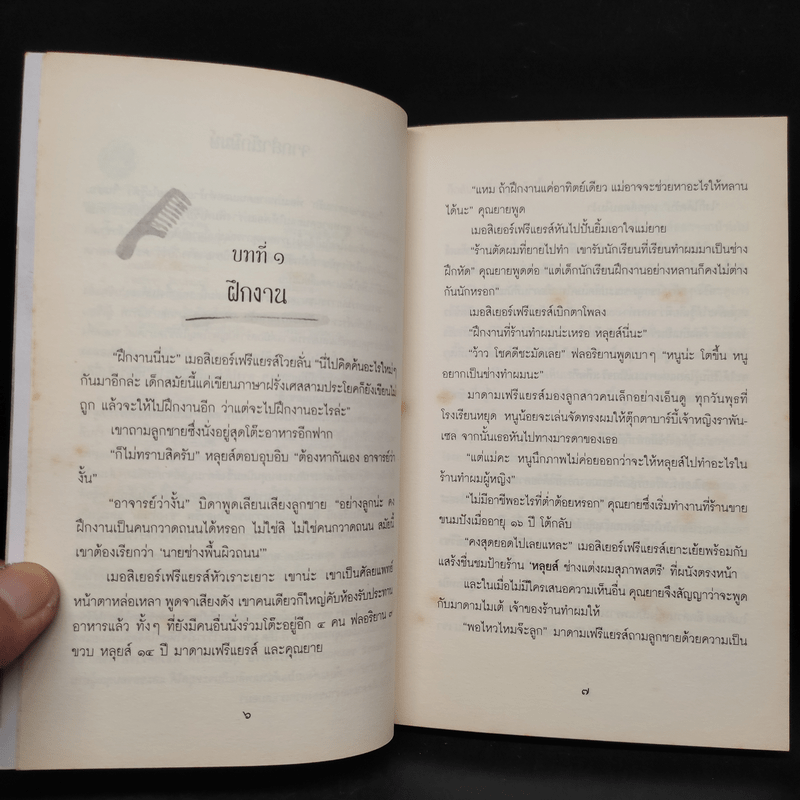 บทที่ ๑
ฝึกงาน
“ฝึกงานนี่นะ” เมอสิเยอร์เฟรีแยรส์โวยลั่น “นี่ไปคิดค้นอะไรใหม่ๆ
กันมาอีกล่ะ เด็กสมัยนี้แค่เขียนภาษาฝรั่งเศสสามประโยคก็ยังเขียนไม่
ถูก แล้วจะให้ไปฝึกงานอีก ว่าแต่จะไปฝึกงานอะไรล่ะ”
เขาถามลูกชายซึ่งนั่งอยู่สุดโต๊ะอาหารอีกฟาก
“ก็ไม่ทราบสิครับ” หลุยส์ตอบอุบอิบ “ต้องหากันเอง อาจารย์ว่า
งั้น”
“อาจารย์ว่างั้น” บิดาพูดเลียนเสียงลูกชาย “อย่างลูกน่ะ คง
ฝึกงานเป็นคนกวาดถนนได้หรอก ไม่ใช่สิ ไม่ใช่คนกวาดถนน สมัยนี้
เขาต้องเรียกว่า ‘นายช่างพื้นผิวถนน’”
เมอสิเยอร์เฟรีแยรส์หัวเราะเยาะ เขาน่ะ เขาเป็นศัลยแพทย์
หน้าตาหล่อเหลา พูดจาเสียงดัง เขาคนเดียวก็ใหญ่คับห้องรับประทาน
อาหารแล้ว ทั้งๆ ที่ยังมีคนอื่นนั่งร่วมโต๊ะอยู่อีก ๔ คน ฟลอริยาน ๗
ขวบ หลุยส์ ๑๔ ปี มาดามเฟรีแยรส์ และคุณยาย
๖
“แหม ถ้าฝึกงานแค่อาทิตย์เดียว แม่อาจจะช่วยหาอะไรให้หลาน
ได้นะ” คุณยายพูด
เมอสิเยอร์เฟรีแยรส์หันไปปั้นยิ้มเอาใจแม่ยาย
“ร้านตัดผมที่ยายไปทำ เขารับนักเรียนที่เรียนทำผมมาเป็นช่าง
ฝึกหัด” คุณยายพูดต่อ “แต่เด็กนักเรียนฝึกงานอย่างหลานก็คงไม่ต่าง
กันนักหรอก”
เมอสิเยอร์เฟรีแยรส์เบิกตาโพลง
“ฝึกงานที่ร้านทำผมน่ะเหรอ หลุยส์นี่นะ”
“ว้าว โชคดีชะมัดเลย” ฟลอริยานพูดเบาๆ “หนูน่ะ โตขึ้น หนู
อยากเป็นช่างทำผมนะ”
มาดามเฟรีแยรส์มองลูกสาวคนเล็กอย่างเอ็นดู ทุกวันพุธที่
โรงเรียนหยุด หนูน้อยจะเล่นจัดทรงผมให้ตุ๊กตาบาร์บี้เจ้าหญิงราพัน-
เซล จากนั้นเธอหันไปทางมารดาของเธอ
“แต่แม่คะ หนูนึกภาพไม่ค่อยออกว่าจะให้หลุยส์ไปทำอะไรใน
ร้านทำผมผู้หญิง”
“ไม่มีอาชีพอะไรที่ต่ำต้อยหรอก” คุณยายซึ่งเริ่มทำงานที่ร้านขาย
ขนมปังเมื่ออายุ ๑๖ ปี โต้กลับ
“คงสุดยอดไปเลยแหละ” เมอสิเยอร์เฟรีแยรส์เยาะเย้ยพร้อมกับ
แสร้งชื่นชมป้ายร้าน ‘หลุยส์ ช่างแต่งผมสุภาพสตรี’ ที่ผนังตรงหน้า
และในเมื่อไม่มีใครเสนอความเห็นอื่น คุณยายจึงสัญญาว่าจะพูด
กับมาดามไมเต้ เจ้าของร้านทำผมให้
“พอไหวไหมจ๊ะลูก” มาดามเฟรีแยรส์ถามลูกชายด้วยความเป็น
๗